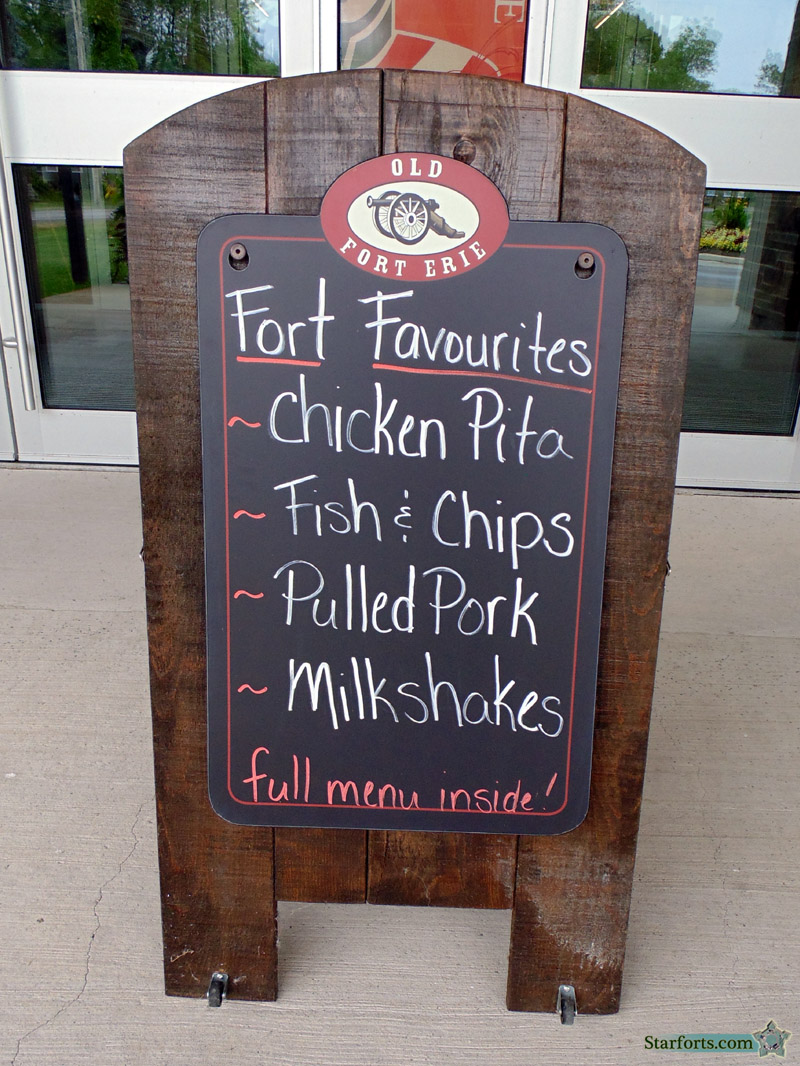 OLD
FORT ERIE
Fort Favourites
~ Chicken Pita
~ Fish & Chips
~ Pulled Pork
~ Milkshakes
full menu inside!
Starforts.com